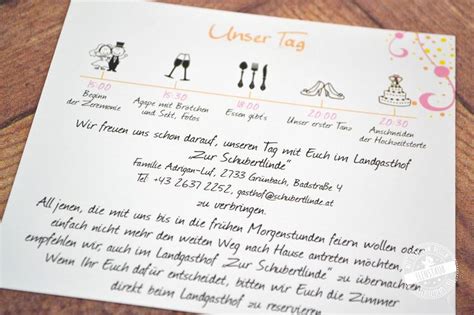 Unser Tag
15:00
Beginn
der Zeremonie
15:30
Agape mit Brötchen
und Sekt, Fotos
18:00
Essen gibt's
20:00
Unser erster Tanz
20:30
Anschneiden
der Hochzeitstorte
Wir freuen uns schon darauf, unseren Tag mit Euch im Landgasthof
Zur Schubertlinde"
Familie Adrigan-Luf, 2733 Grünbach, Badstraße 4
Tel +43 2637 2252, gasthof@schubertlinde.at
zu verbringen.
All jenen, die mit uns bis in die frühen Morgenstunden feiern wollen oder
einfach nicht mehr den weiten Weg nach Hause antreten möchten,
empfehlen wir, auch im Landgasthof „Zur Schubertlinde" zu übernachten.
Wenn Ihr Euch dafür entscheidet, bitten wir Euch die Zimmer
direkt beim Landgasthof zu reservieren.